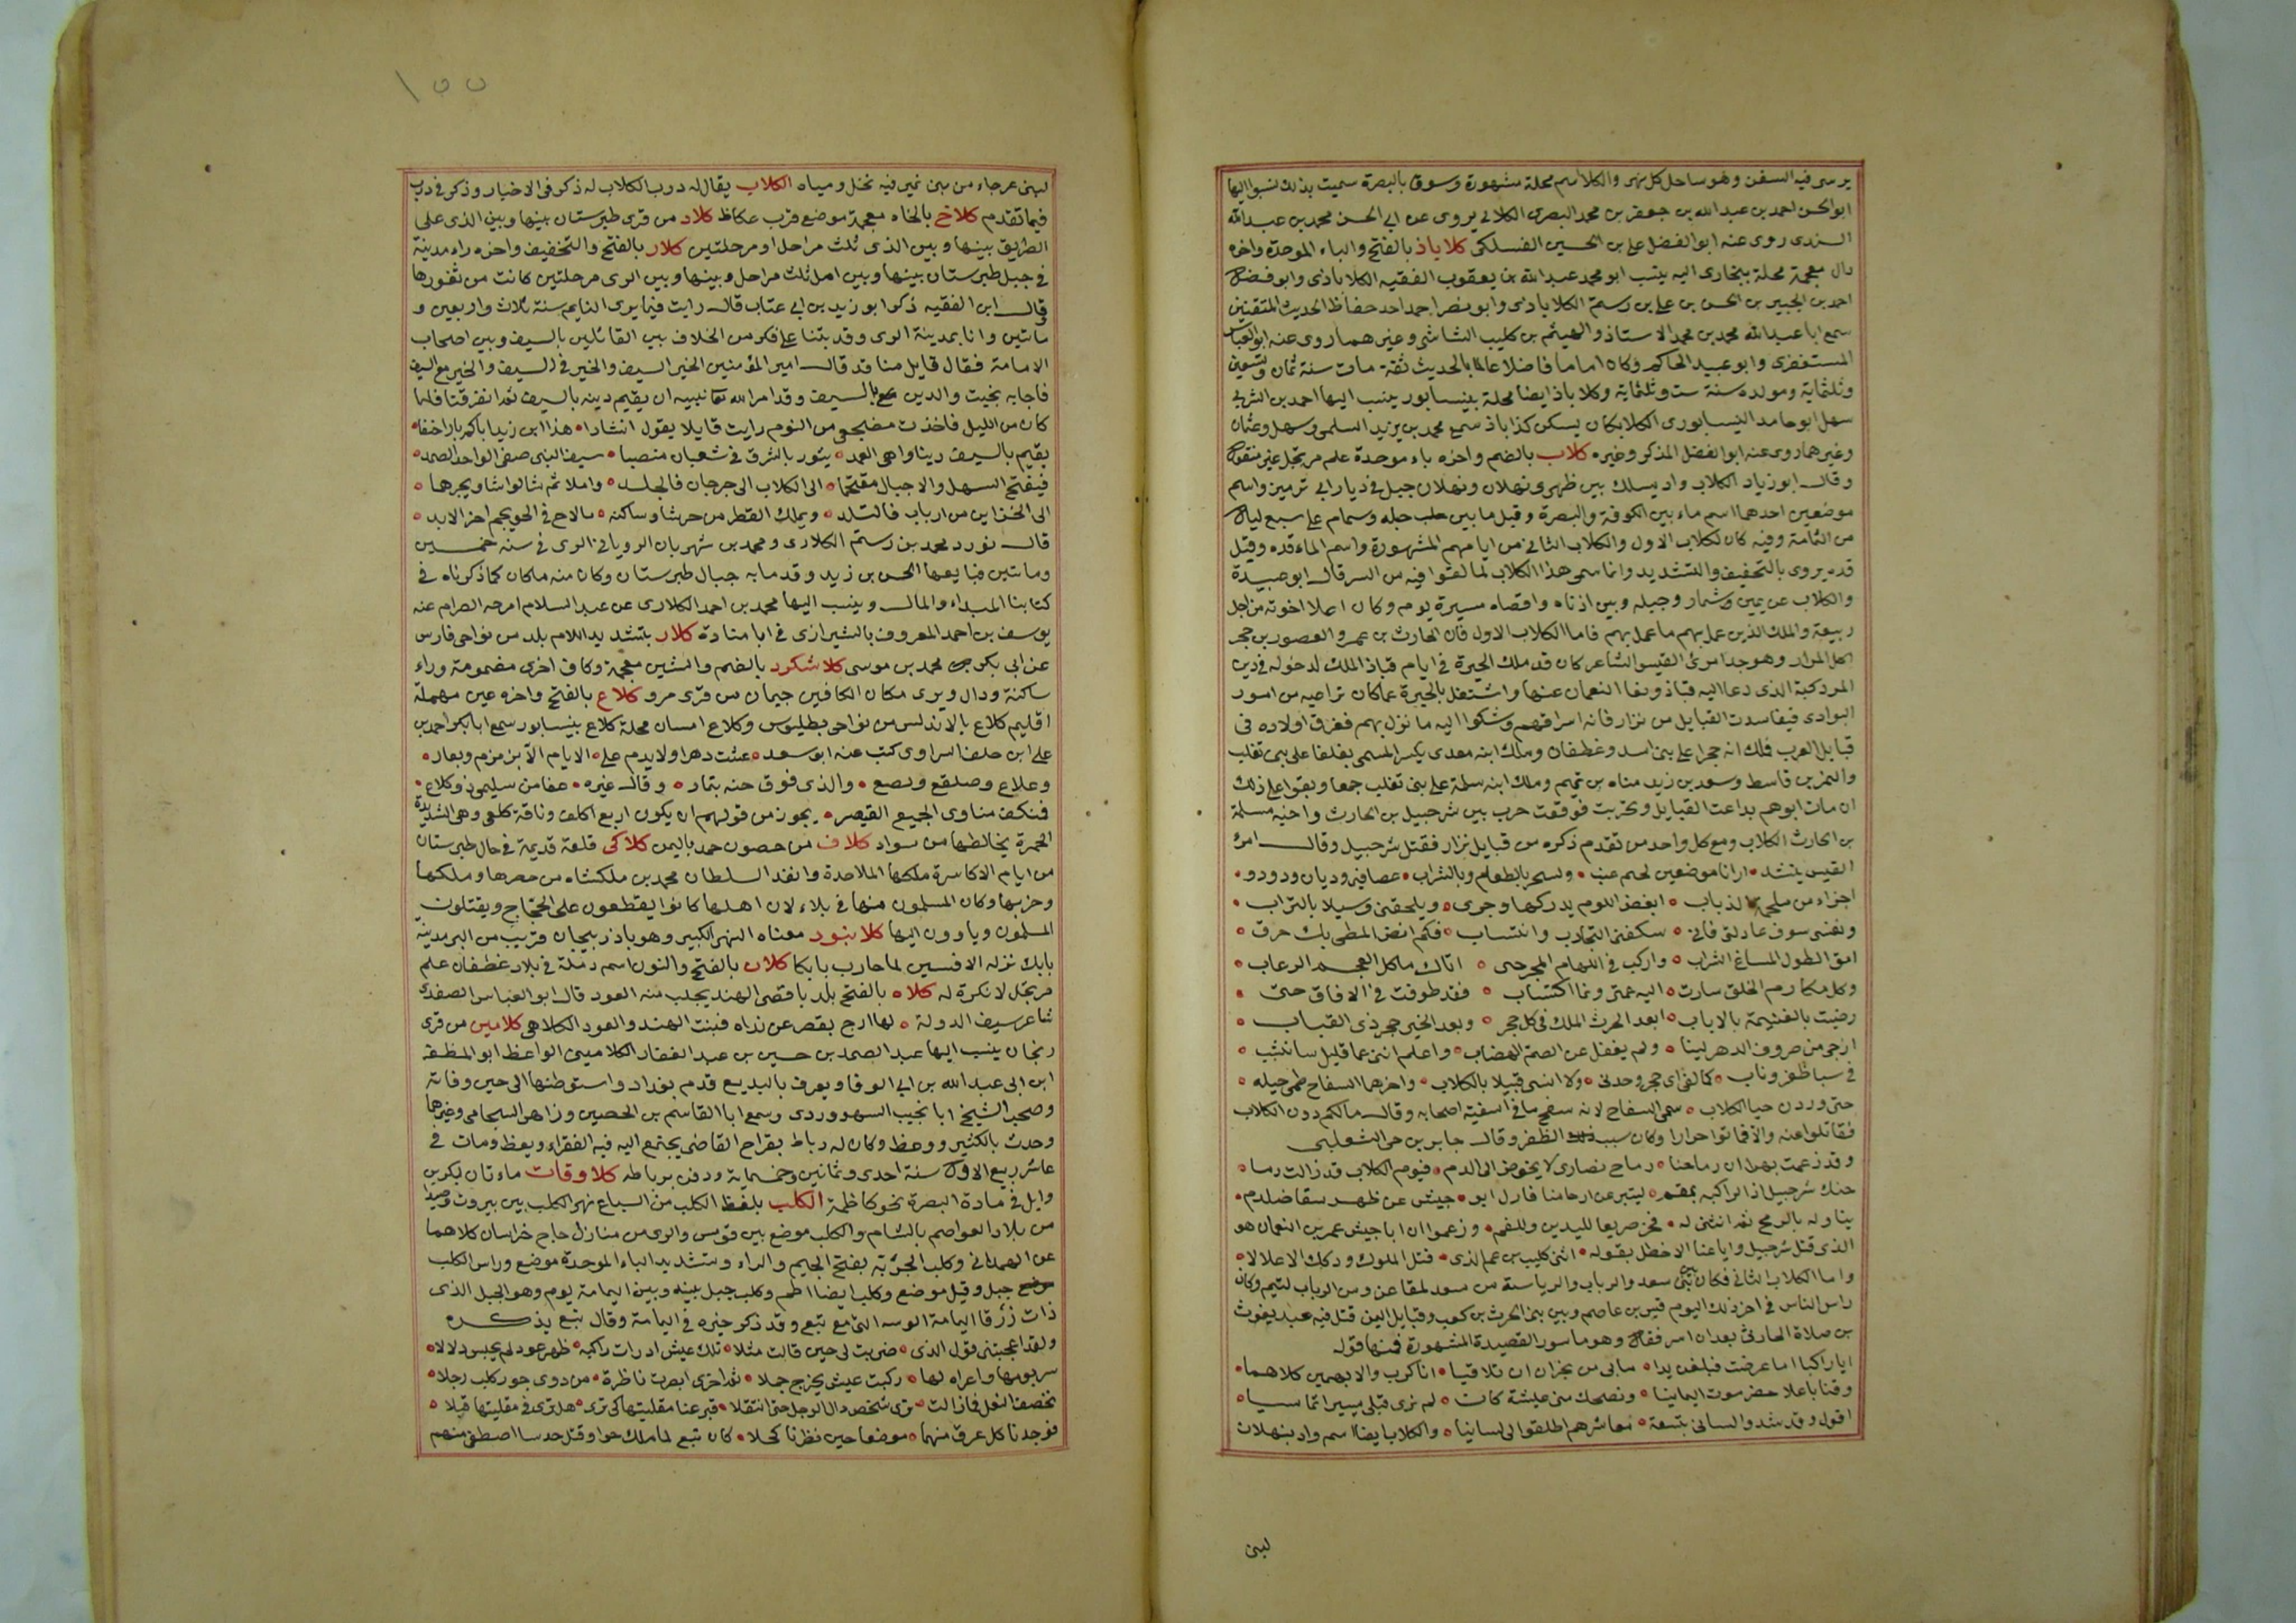 يرسى فيه السفن وهو ساحل كل نهر والكلا اسم محلة مشهورة وسوق بالبصرة سميت بذلك نسبوا اليها
ابو الحسن احمد بن عبد الله بن جعفر بن محمد البصرى الكلائى يروى عن ابى الحسن محمد بن عبد الله
السندى روى عنه ابو الفضل على بن الحسين الفسلكى كلاباذ بالفتح والباء الموحدة واخره
دال معجمة محلة ببخارى اليه ينسب ابو محمد عبد الله بن يعقوب الفقيه الكلاباذى وابو فضل
احمد بن الجبير بن الحسن بن على بن رستم الكلاباذى وابو نصر احمد احد حفاظ الحديث المتقنين
سمع ابا عبد الله محمد بن محمد الاستاذ والهيثم بن كليب الشاشى وغيرهما روى عنه ابو العباس
المستغفرى وابو عبيد الحاكم وكان اماما فاضلا عالما بالحديث ثقة مات سنة ثمان وتسعين
وثلثماية ومولده سنة ست وثلثماية وكلاباذ ايضا محلة بنيسابور ينسب اليها احمد بن السرى
سهل ابو حامد النيسابورى الكلا كان يسكن كذاباذ سمع محمد بن يزيد السلمى وسهل وعثمان
وغيرهما روى عنه ابو الفضل المذكر وغيره كلاب بالضم واخره باء موحدة علم مرتجل غير منقول
وقال ابو زياد الكلاب واد يسلك بين ظهرى ثهلان وثهلان جبل فى ديار ابى نمير واسم
موضعين احدهما اسم ماء بين الكوفة والبصرة وقيل ما بين جبله وشمام على سبع ليال
من الثمامة وفيه كان لكلاب الاول والكلاب الثانى من ايامهم المشهورة واسم الماء قده وقيل
قده يروى بالتخفيف والتشديد وانما سمى هذا الكلاب لما لقوا فيه من السر قال ابو عبيدة
والكلاب عن يمين وشمار وجبله وبين ادناه واقصاه مسيرة يوم وكان اعلا اخوته من اجل
ربيعة والملك الذين عمل بهم ما عمل بهم فاما الكلاب الاول فان الحارث بن عمرو المقصور بن حجر
اكل المرار وهو جد امرئ القيس الشاعر كان قد ملك الحيرة فى ايام قباذ الملك لدخوله فى دين
المزدكية الذى دعا اليه قباذ ونفا النعمان عنها واشتغل بالحيرة عما كان تراعيه من امور
البوادى فتفاسدت القبايل من نزار فاته اشرافهم وشكوا اليه ما نزل بهم ففرق اولاده فى
قبايل العرب فملك ابنه حجرا على بنى اسد وغطفان وملك ابنه معدى يكسر المسمى بغلفا على بنى تغلب
والنمر بن قاسط وسعد بن زيد مناه بن تميم وملك ابنه سلمة على بنى تغلب جمعا وبقوا على ذلك
ان مات ابوهم تداعت القبايل وتحزبت فوقعت حرب بين شرحبيل بن الحارث واخيه مسلمة
بن الحارث الكلاب ومع كل واحد من تقدم ذكره من قبايل نزار فقتل شرحبيل وقال امرء
القيس ينشد ه ارانا موضعين لحتم عيب ه ونسحر بالطعام وبالشراب ه عصافير وذبان ودود ه
اجراء من الذباب ه ابغض اللوم يدركها وجرى ه ويلحقنى وشيكا بالتراب ه
ونفسى سوف عادلتى فانى ه سكفنى التجارب وانتساب ه فكم انض المطى بك خرق ه
امق الطول الماع السراب ه واركب فى اللهام المجر حتى ه اناك ماكل القحم الرعاب ه
وكل مكارم الخلق سارت ه اليه همتى ونما اكتساب ه فقد طوفت فى الافاق حتى ه
رضيت بالغنيمة بالاياب ه ابعد الحرث الملك فى كل حجر ه وبعد الخير حجر ذى القباب ه
ارجى من صروف الدهر لينا ه ولم يغفل عن الصم الهضاب ه واعلم اننى عما قليل سانشب ه
فى سبا ظفر وناب ه كما لقى ابى حجر وجدى ه ولا انسى قبيلا بالكلاب ه واخرهما السفاح ظمى خيله ه
حتى وردن حيا الكلاب ه سمى السفاح لانه سفح ما فى اسقية اصحابه وقال ما لكم دون الكلاب
فقاتلوا عنه والا فماتوا حرارا وكان سبب الظفر وقال جابر بن حى الثعلبى
وقد زعمت بهرا ان رماحنا ه رماح نصارى لا يخوض الى الدم ه فيوم الكلاب قد زالت رما ه
بناوله بالرمح ثم انثنى له ه فخر صريعا لليدين وللفم ه وزعموا ان ابا جيش عمر بن النعمان هو
الذى قتل شرحبيل وايا عنا الاخطل بقوله ه ابنى كليب ان عمى الذى ه قتل الملوك وفكك الاغلالا ه
واما الكلاب الثانى فكان بين بنى سعد والرباب والرياسة من سعد لمقاعس ومن الرباب لتيم وكان
راس الناس فى اخر ذلك اليوم قيس بن عاصم وبين بنى الحرث بن كعب وقبايل اليمن قتل فيه عبد يغوث
بن صلاة الحارثى بعد ان اسر فقال وهو ماسور القصيدة المشهورة فمنها قوله
ايا راكبا اما عرضت فبلغن ه ندا ماى من نجران ان تلاقيا ه ابا كرب والايهمين كلاهما ه
وقيسا باعلا حضر موت اليمانيا ه وتضحك منى عبشية كان ه لم ترى قبلى اسيرا يمانيا ه
اقول وقد شدوا لسانى بنسعة ه معاشرهم اطلقوا لى لسانيا ه والكلاب ايضا اسم واد بثهلان
لبنى
١٥٥
لبنى عرجاء من بنى نمير فيه نخل ومياه الكلاب يقال له درب الكلاب له ذكر فى الاخبار وذكر فى درب
فيما تقدم كلاخ بالخاء معجمة موضع قرب عكاظ كلاد من قرى طبرستان بينها وبين الذى على
الطريق بينها وبين الذى ثلث مراحل او مرحلتين كلار بالفتح والتخفيف واخره راء مدينة
فى جبل طبرستان بينها وبين امل ثلث مراحل وبينها وبين الرى مرحلتين كانت من ثغورها
قال ابن الفقيه ذكر ابو زيد بن ابى عتاب قال رايت فيما يرى النايم سنة ثلاث واربعين و
ماتين وانا بمدينة الرى وقد بتنا على فكر من الخلاف بين القائلين بالسيف وبين اصحاب
الامامة فقال قايل منا قد قال امير المؤمنين الخير السيف والخير فى السيف والخير مع السيف
فاجابه بخيت والدين بالسيف وقد امر الله تعا نبيه ان يقيم دينه بالسيف ثم تفرقنا فلما
كان من الليل فاخذت مضجعى من النوم رايت قايلا يقول انشادا ه هذا ابن زيد اباكم بارا خنفا ه
يقيم بالسيف دينا واهى العمد ه يثور بالشرق فى شعبان منتصبا ه سيف النبى صفى الواحد الصمد ه
فيفتح السهل والاجبال مقتحما ه الى الكلاب الى جرجان فالجلد ه واملا ثم شالوا شاويجرها ه
الى الخزاين من ارباب فالتلد ه ويملك القطر من حرشا وساكنه ه ما لاح فى الحو نجم اخر الابد ه
قال فورد محمد بن رستم الكلارى ومحمد بن شهريان الرويانى الرى فى سنة خمسين
وماتين فبايعها الحسن بن زيد وقدما به جبال طبرستان وكان منه ما كان كما ذكرناه فى
كتابنا المبداء والمال وينسب اليها محمد بن احمد الكلارى عن عبد السلام امرحه الصرام عنه
يوسف بن احمد المعروف بالشيرازى فى ابا منادة كلار بتشديد اللام بلد من نواحى فارس
عن ابى بكر محمد بن موسى كلاشكرد بالضم والشين معجمة وكاف اخرى مضمومة وراء
ساكنة ودال ويرى مكان الكافين جيمان من قرى مرو كلاع بالفتح واخره عين مهملة
اقليم كلاع بالاندلس من نواحى بطليوس وكلاع امسان محلة كلاع بنيسابور سمع ابا بكر احمد بن
على ابن خلف السراوى كتب عنه ابو سعد ه عشت دهرا ولا يدم على ه الايام الا بن مرم وبعار ه
وعلاع وصلفع وبصع ه والذى فوق حنه بتمار ه وقال غيره ه عفا من سليمى ذو كلاع ه
فنكف مناوى الجميع القيصر ه يجوز من قولهم ان يكون اربع اكلف وناقة كلعى وهى الشديدة
الحمرة يخالطها من سواد كلاف من حصون حمد باليمن كلاكى قلعة قديمة فى جال طبرستان
من ايام الاكاسرة ملكها الملاحدة وانفذ السلطان محمد بن ملكشاه من حصرها وملكها
وخربها وكان المسلمون منها فى بلاء لان اهلها كانوا يقطعون على الحجاج ويقتلون
المسلمون وياوون اليها كلانبود معناه النهر الكبير وهو باذربيجان قريب من البر مدينة
بابك نزله الافشين لما حارب بابكا كلان بالفتح والنون اسم رملة فى بلاد غطفان علم
مرتجل لا نكرة له كلاه بالفتح بلد باقصى الهند يجلب منه العود قال ابو العباس الصفدى
شاعر سيف الدولة ه لها ارج يقصر عن نداه فبنت الهند والعود الكلاهى كلامين من قرى
زنجان ينسب اليها عبد الصمد بن حسين بن عبد الغفار الكلامينى الواعظ ابو المظفر
ابن ابى عبد الله بن ابى الوفا ويعرف بالبديع قدم بغداد واستوطنها الى حين وفاته
وصحب الشيخ ابا نجيب السهروردى وسمع ابا القاسم بن الحصين وزاهر السحامى وغيرها
وحدث بالكثير ووعظ وكان له رباط بقراح القاضى يجتمع اليه فيه الفقراء ويعظ ومات فى
عاشر ربيع الاول سنة احدى وثمانين وخمسماية ودفن برباطه كلاوقات ماءتان لبكر بن
وايل فى مادة البصرة نحو كاظمة الكلب بلفظ الكلب من السباع نهر الكلب بين بيروت وصيدا
من بلاد العواصم بالشام والكلب موضع بين قومس والرى من منازل حاج خراسان كلاهما
عن الهمدانى وكلب الجرّبة بفتح الجيم والراء وتشديد الباء الموحدة موضع وراس الكلب
جبل وقيل موضع وكلب ايضا اطم وكلب جبل بينه وبين اليمامة يوم وهو الجبل الذى
ذات زرقا اليمامة الوسه التى مع تبع وقد ذكر خبره فى اليمامة وقال تبع يذكره
ولقد اعجبتنى قول الذى ه ضربت لى حين قالت مثلا ه تلك عيش اد رات راكبه ه ظهر عود لم يجبس ذلالا ه
سر يومها واعراه لها ه ركبت عيش يخزج جملا ه ثم اخرى ابصرت ناظرة ه من ذوى جو وكلب رجلا ه
تخصف النعل فما زالت ه ترى شخص ذال الرجل حتى انتقلا ه قبرعنا مقليتها كى ترى ه هل ترى فى مقليتها قبلا ه
فوجدنا كل عرق منهما ه موضعا حين نظرنا كحلا ه كان تبع لما ملك حوا وقتل حدسا اصطفى منهم